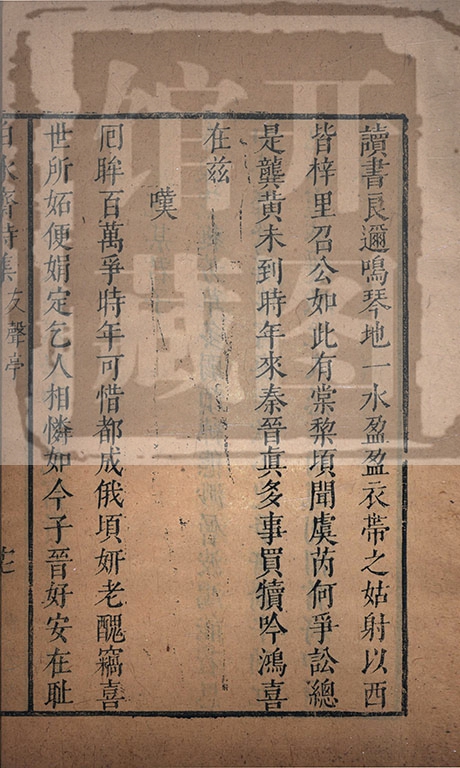 讀書良邇鳴琴地一水盈盈衣帶之姑射以西
皆梓里召公如此有棠黎頃聞虞芮何爭訟總
是龔黃未到時年來秦晉眞多事買犢吟鴻喜
在兹
嘆
厄眸百萬爭時年可惜都成俄頃妍老醜竊喜
世所妬便娟定乞人相憐如今子晉好安在耻
白水齋詩集 友聲亭
开图
馆藏